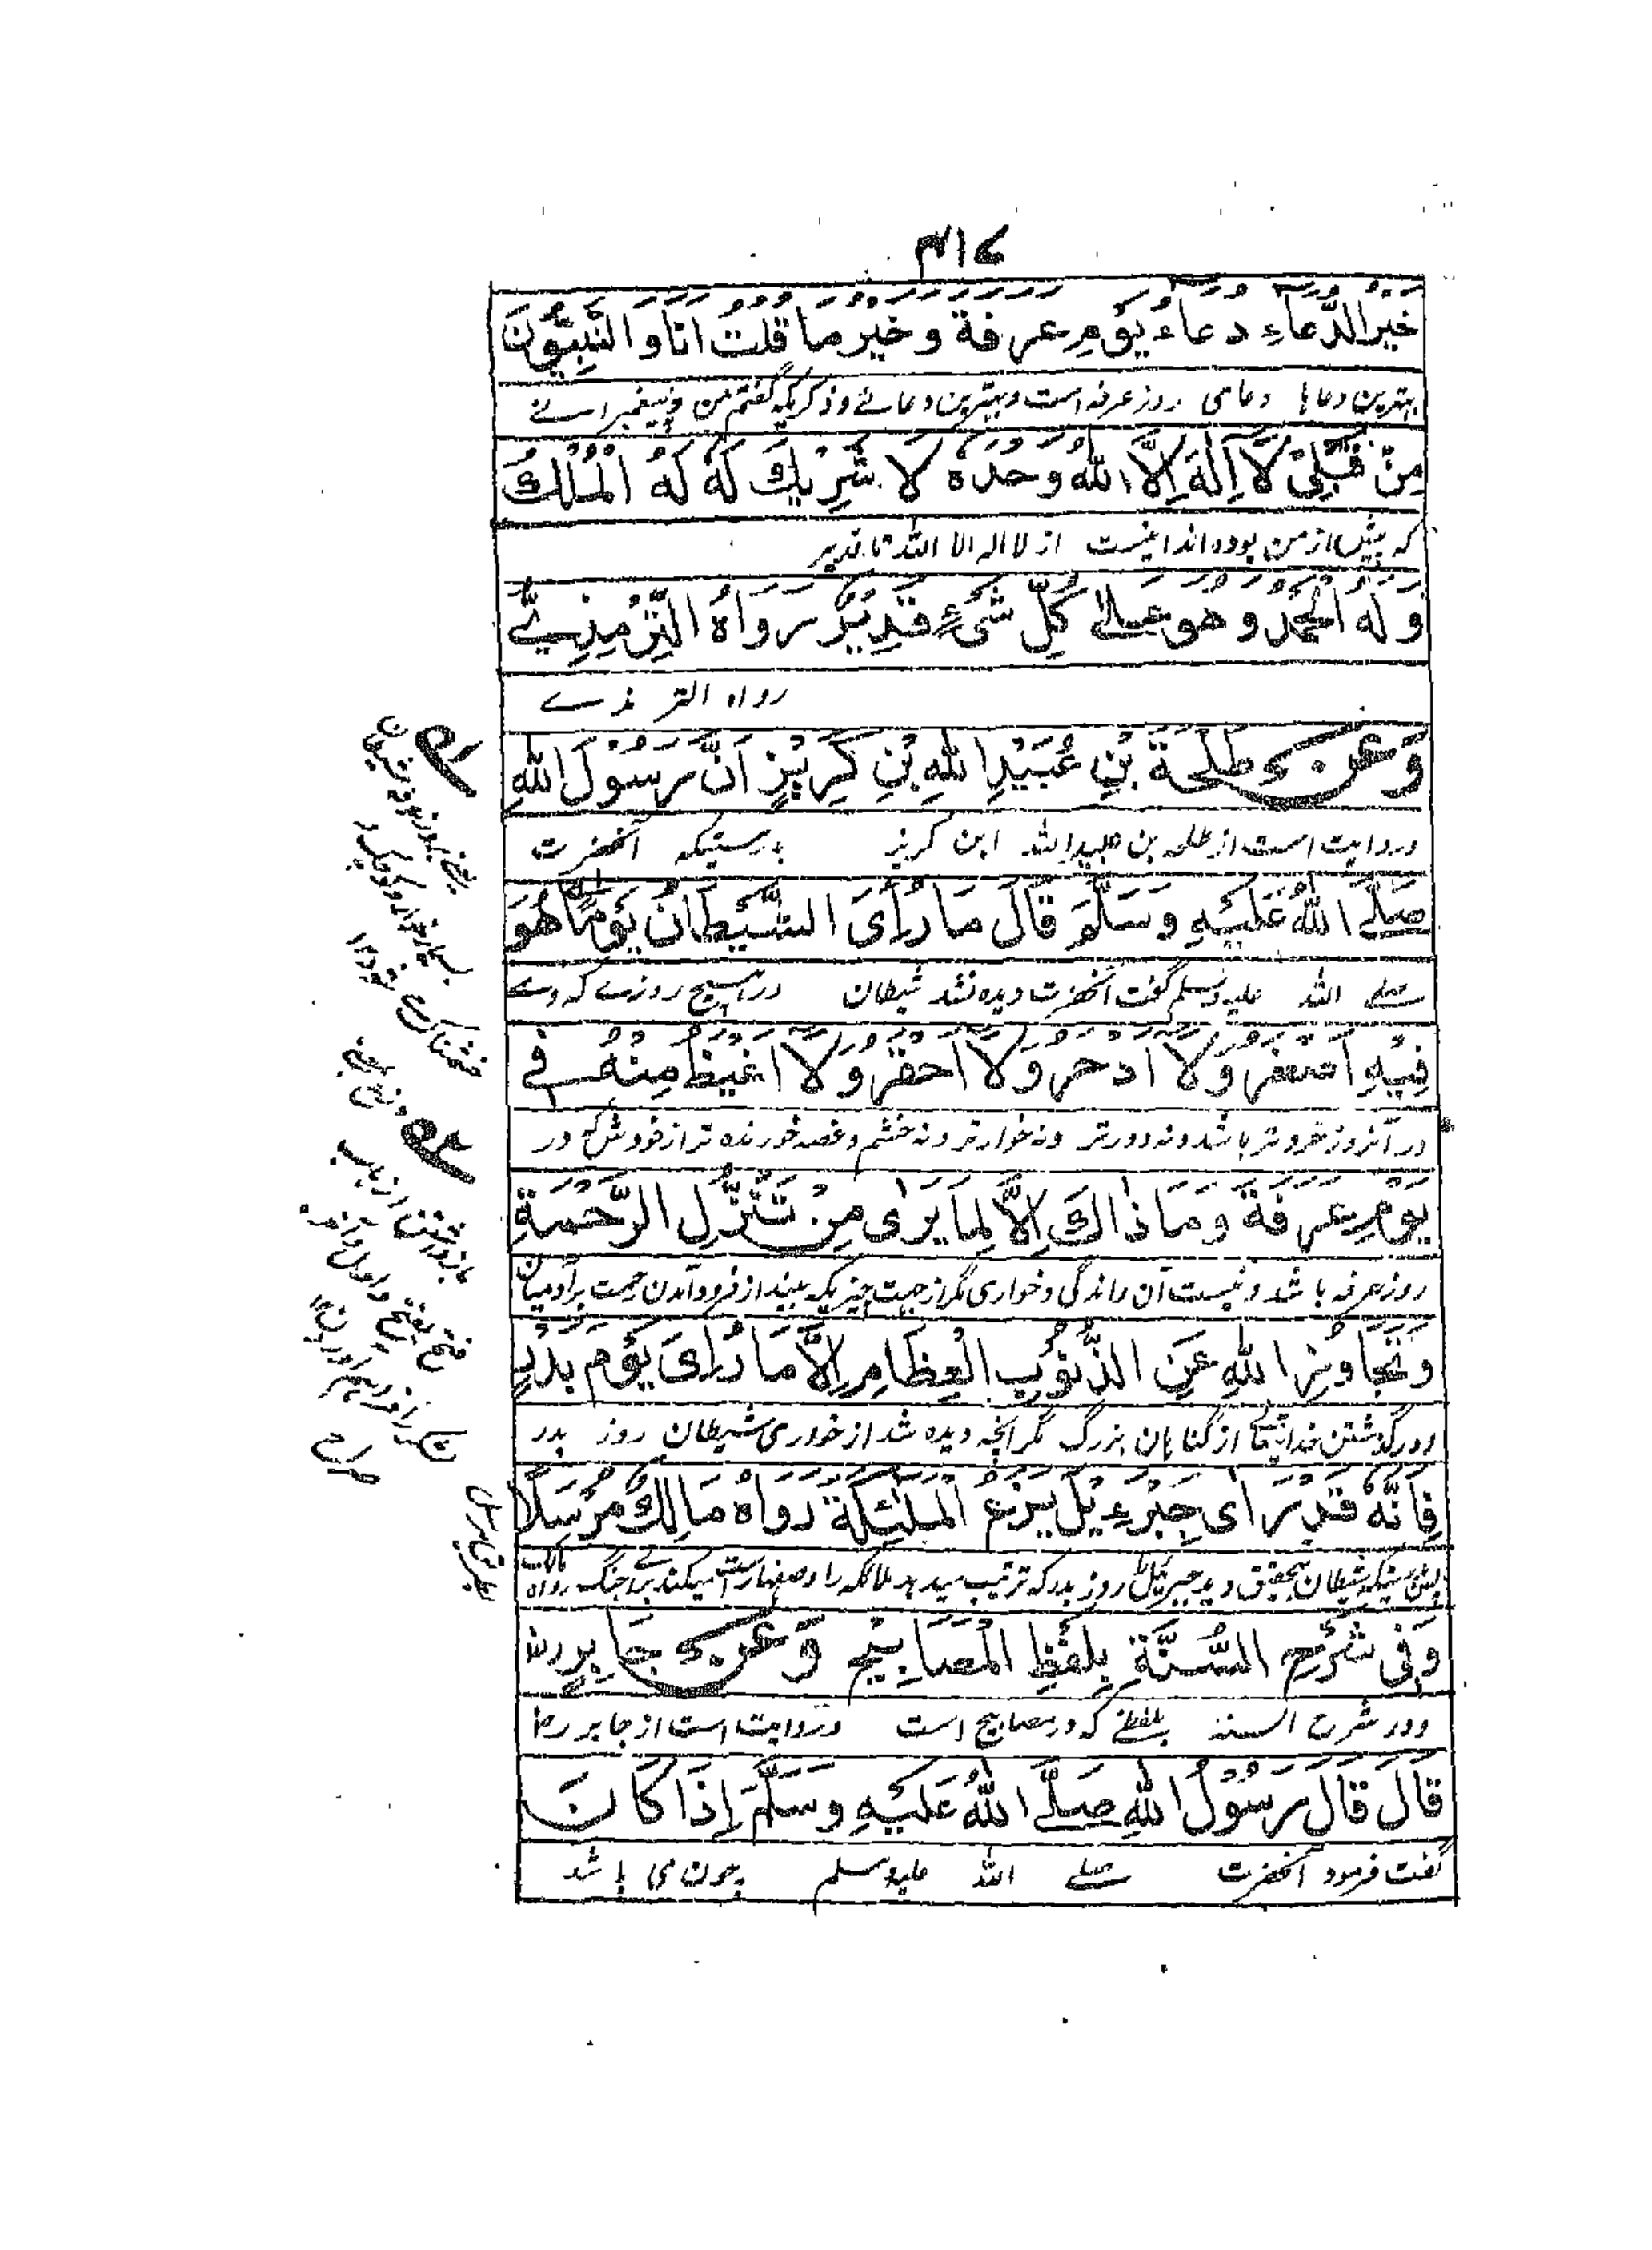 ۴۱۷
خَيْرُ الدُّعَاءِ دُعَاءُ يَوْمِ عَرَفَةَ وَخَيْرُ مَا قُلْتُ اَنَا وَالنَّبِيُّوْنَ
بهترین دعاها دعای روز عرفه است و بهترین دعائے و ذکریکه گفتم من و پیغمبرانے
مِنْ قَبْلِيْ لَآ اِلٰهَ اِلَّا اللهُ وَحْدَهٗ لَا شَرِيْكَ لَهٗ لَهُ الْمُلْكُ
که پیش از من بوده اند اینست از لا اله الا الله تا قدیر
وَلَهُ الْحَمْدُ وَهُوَ عَلٰى كُلِّ شَيْءٍ قَدِيْرٌ رَوَاهُ التِّرْمِذِيُّ
رواه الترمذے
وَعَنْ طَلْحَةَ بْنِ عُبَيْدِ اللهِ بْنِ كَرِيْزٍ اَنَّ رَسُوْلَ اللهِ
و روایت است از طلحه بن عبیدالله ابن کریز بدرستیکه آنحضرت
صَلَّى اللهُ عَلَيْهِ وَسَلَّمَ قَالَ مَا رُاِىَ الشَّيْطَانُ يَوْمًا هُوَ
صلے الله علیه وسلم گفت آنحضرت دیده نشد شیطان در هیچ روزے که وے
فِيْهِ اَصْغَرُ وَلَا اَدْحَرُ وَلَا اَحْقَرُ وَلَا اَغْيَظُ مِنْهُ فِي
در آنروز خردتر باشد و نه دورتر و نه خوارتر و نه خشم و غصه خورنده تر از خودش در
يَوْمِ عَرَفَةَ وَمَا ذَاكَ اِلَّا لِمَا يَرٰى مِنْ تَنَزُّلِ الرَّحْمَةِ
روز عرفه باشد و نیست آن راندگی و خواری مگر از جهت چیزیکه بیند از فرود آمدن رحمت بر آدمیان
وَتَجَاوُزِ اللهِ عَنِ الذُّنُوْبِ الْعِظَامِ اِلَّا مَا رُاِىَ يَوْمَ بَدْرٍ
و درگذشتن خدایتعالی از گناهان بزرگ مگر انچه دیده شد از خواری شیطان روز بدر
فَاِنَّهٗ قَدْ رَاٰى جِبْرَءِيْلَ يَزَعُ الْمَلٰئِكَةَ رَوَاهُ مَالِكٌ مُرْسَلًا
شیطان بتحقیق دید جبرئیل روز بدر که ترتیب میدهد ملائکه را و صفها راست میکند براے جنگ رواه مالک
وَفِي شَرْحِ السُّنَّةِ بِلَفْظِ الْمَصَابِيْحِ وَعَنْ جَابِرٍ رض
و در شرح السنه بلفظے که در مصابیح است و روایت است از جابر رض
قَالَ قَالَ رَسُوْلُ اللهِ صَلَّى اللهُ عَلَيْهِ وَسَلَّمَ اِذَا كَانَ
گفت فرمود آنحضرت صلے الله علیه وسلم چون می باشد